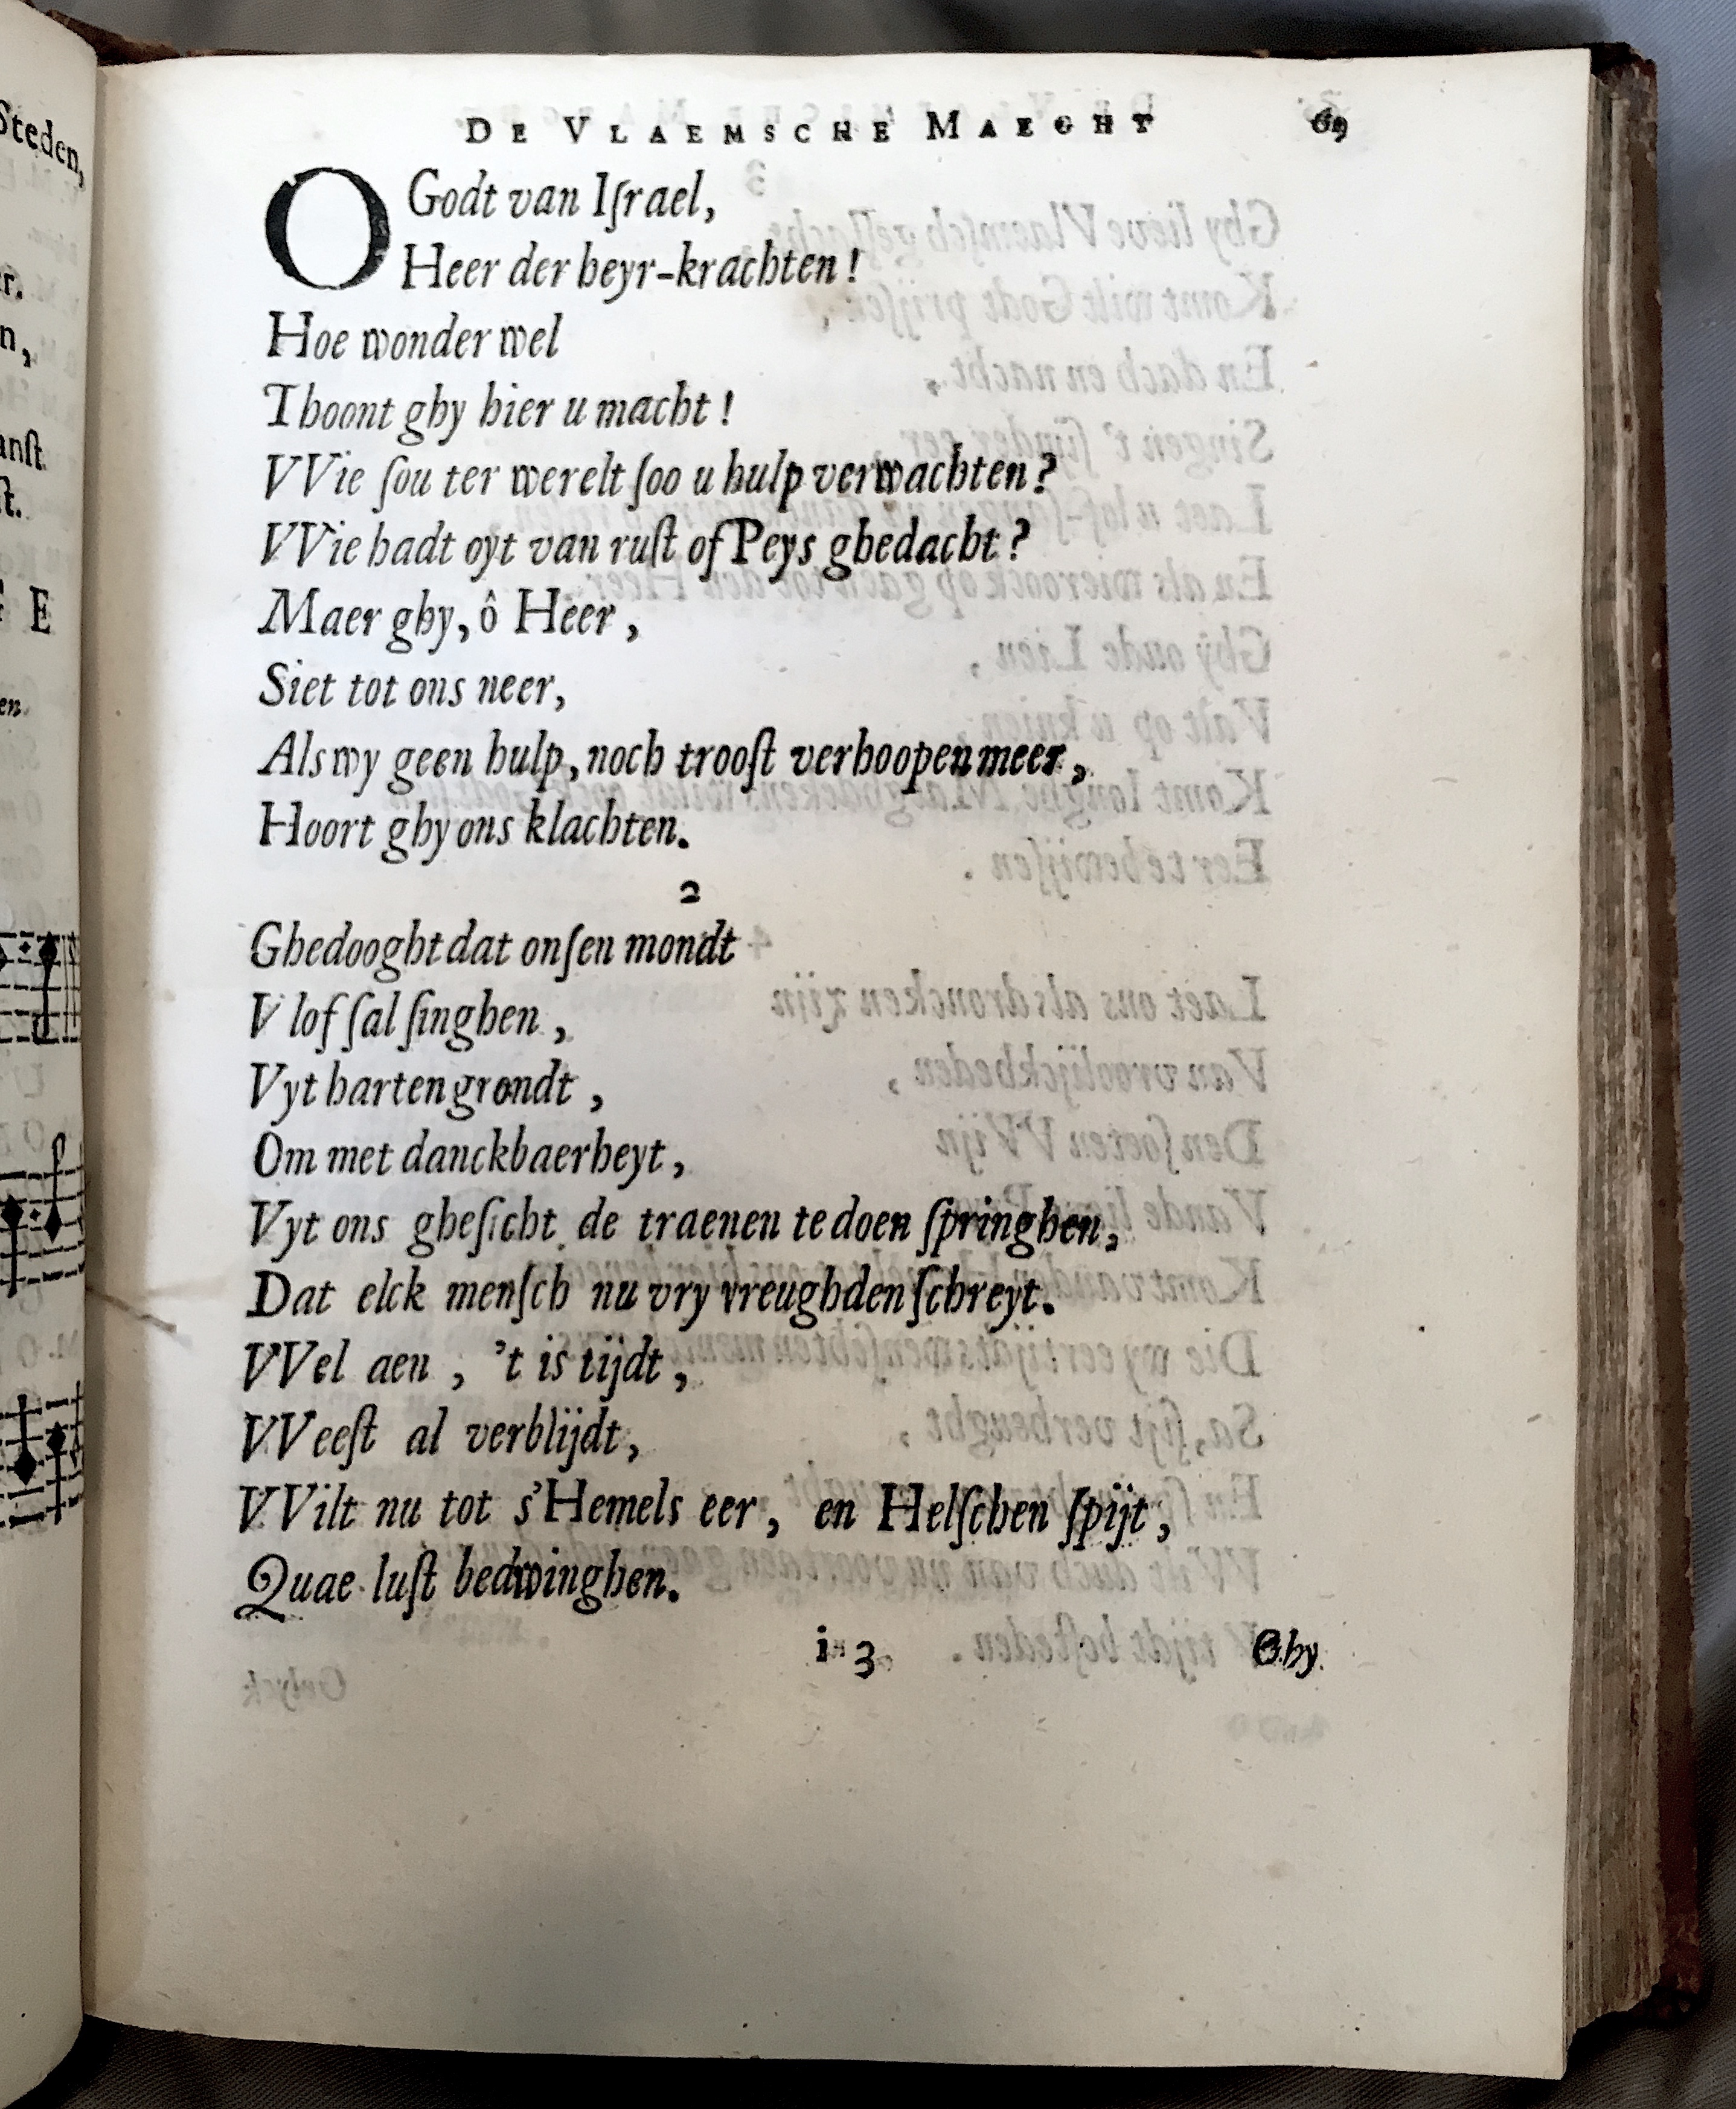 DE VLAEMSCHE MAEGHT 69
O Godt van Iſrael,
Heer der heyr-krachten!
Hoe wonder wel
Thoont ghy hier u macht!
VVie ſou ter werelt ſoo u hulp verwachten?
VVie hadt oyt van ruſt of Peys ghedacht?
Maer ghy, ô Heer,
Siet tot ons neer,
Als wy geen hulp, noch trooſt verhoopen meer,
Hoort ghy ons klachten.
2
Ghedooght dat onſen mondt
V lof ſal ſinghen,
Vyt harten grondt,
Om met danckbaerheyt,
Vyt ons gheſicht de traenen te doen ſpringhen,
Dat elck menſch nu vry vreughden ſchreyt.
VVel aen, 't is tijdt,
VVeeſt al verblijdt,
VVilt nu tot s'Hemels eer, en Helſchen ſpijt,
Quae luſt bedwinghen.
i 3 Ghy